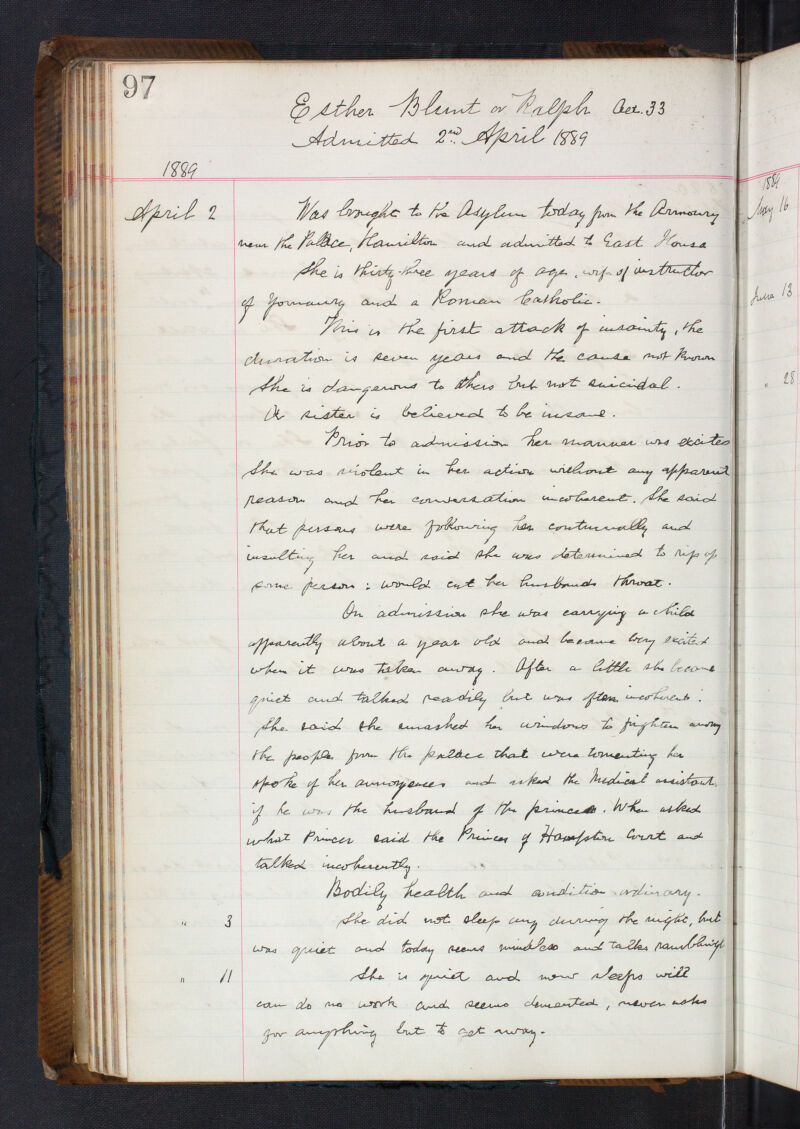 97
Esther Blunt or Ralph Aet. 33
Admitted 2nd April 1889
1889
April 2 Was brought to the Asylum today from the Armoury
near the Palace, Hamilton and admitted to East House
She is thirty-three years of age, wife of instructor
of Yeomanry and a Roman Catholic.
This is the first attack of insanity, the
duration is seven years and the cause not known
She is dangerous to others but not suicidal.
A sister is believed to be insane.
Prior to admission her manner was excited
She was violent in her action without any apparent
reason and her conversation incoherent. She said
that persons were following her continually and
insulting her and said she was determined to rip up
some person: would cut her husbands throat.
On admission she was carrying a child
apparently about a year old and became very excited
when it was taken away. After a little she became
quiet and talked readily but was often incoherent.
She said she smashed her windows to frighten away
the people from the palace that were tormenting her
spoke of her annoyances and asked the Medical assistant
if he was the husband of the princess. When asked
what Princess said the Princess of Hampton Court and
talked incoherently.
Bodily health and condition ordinary.
" 3 She did not sleep any during the night, but
was quiet and today seems mindless and talks ramblingly
" 11 She is quiet and now sleeps well
can do no work and seems demented, never asks
for anything but to get away.
1889
May 16
June 13
" 28